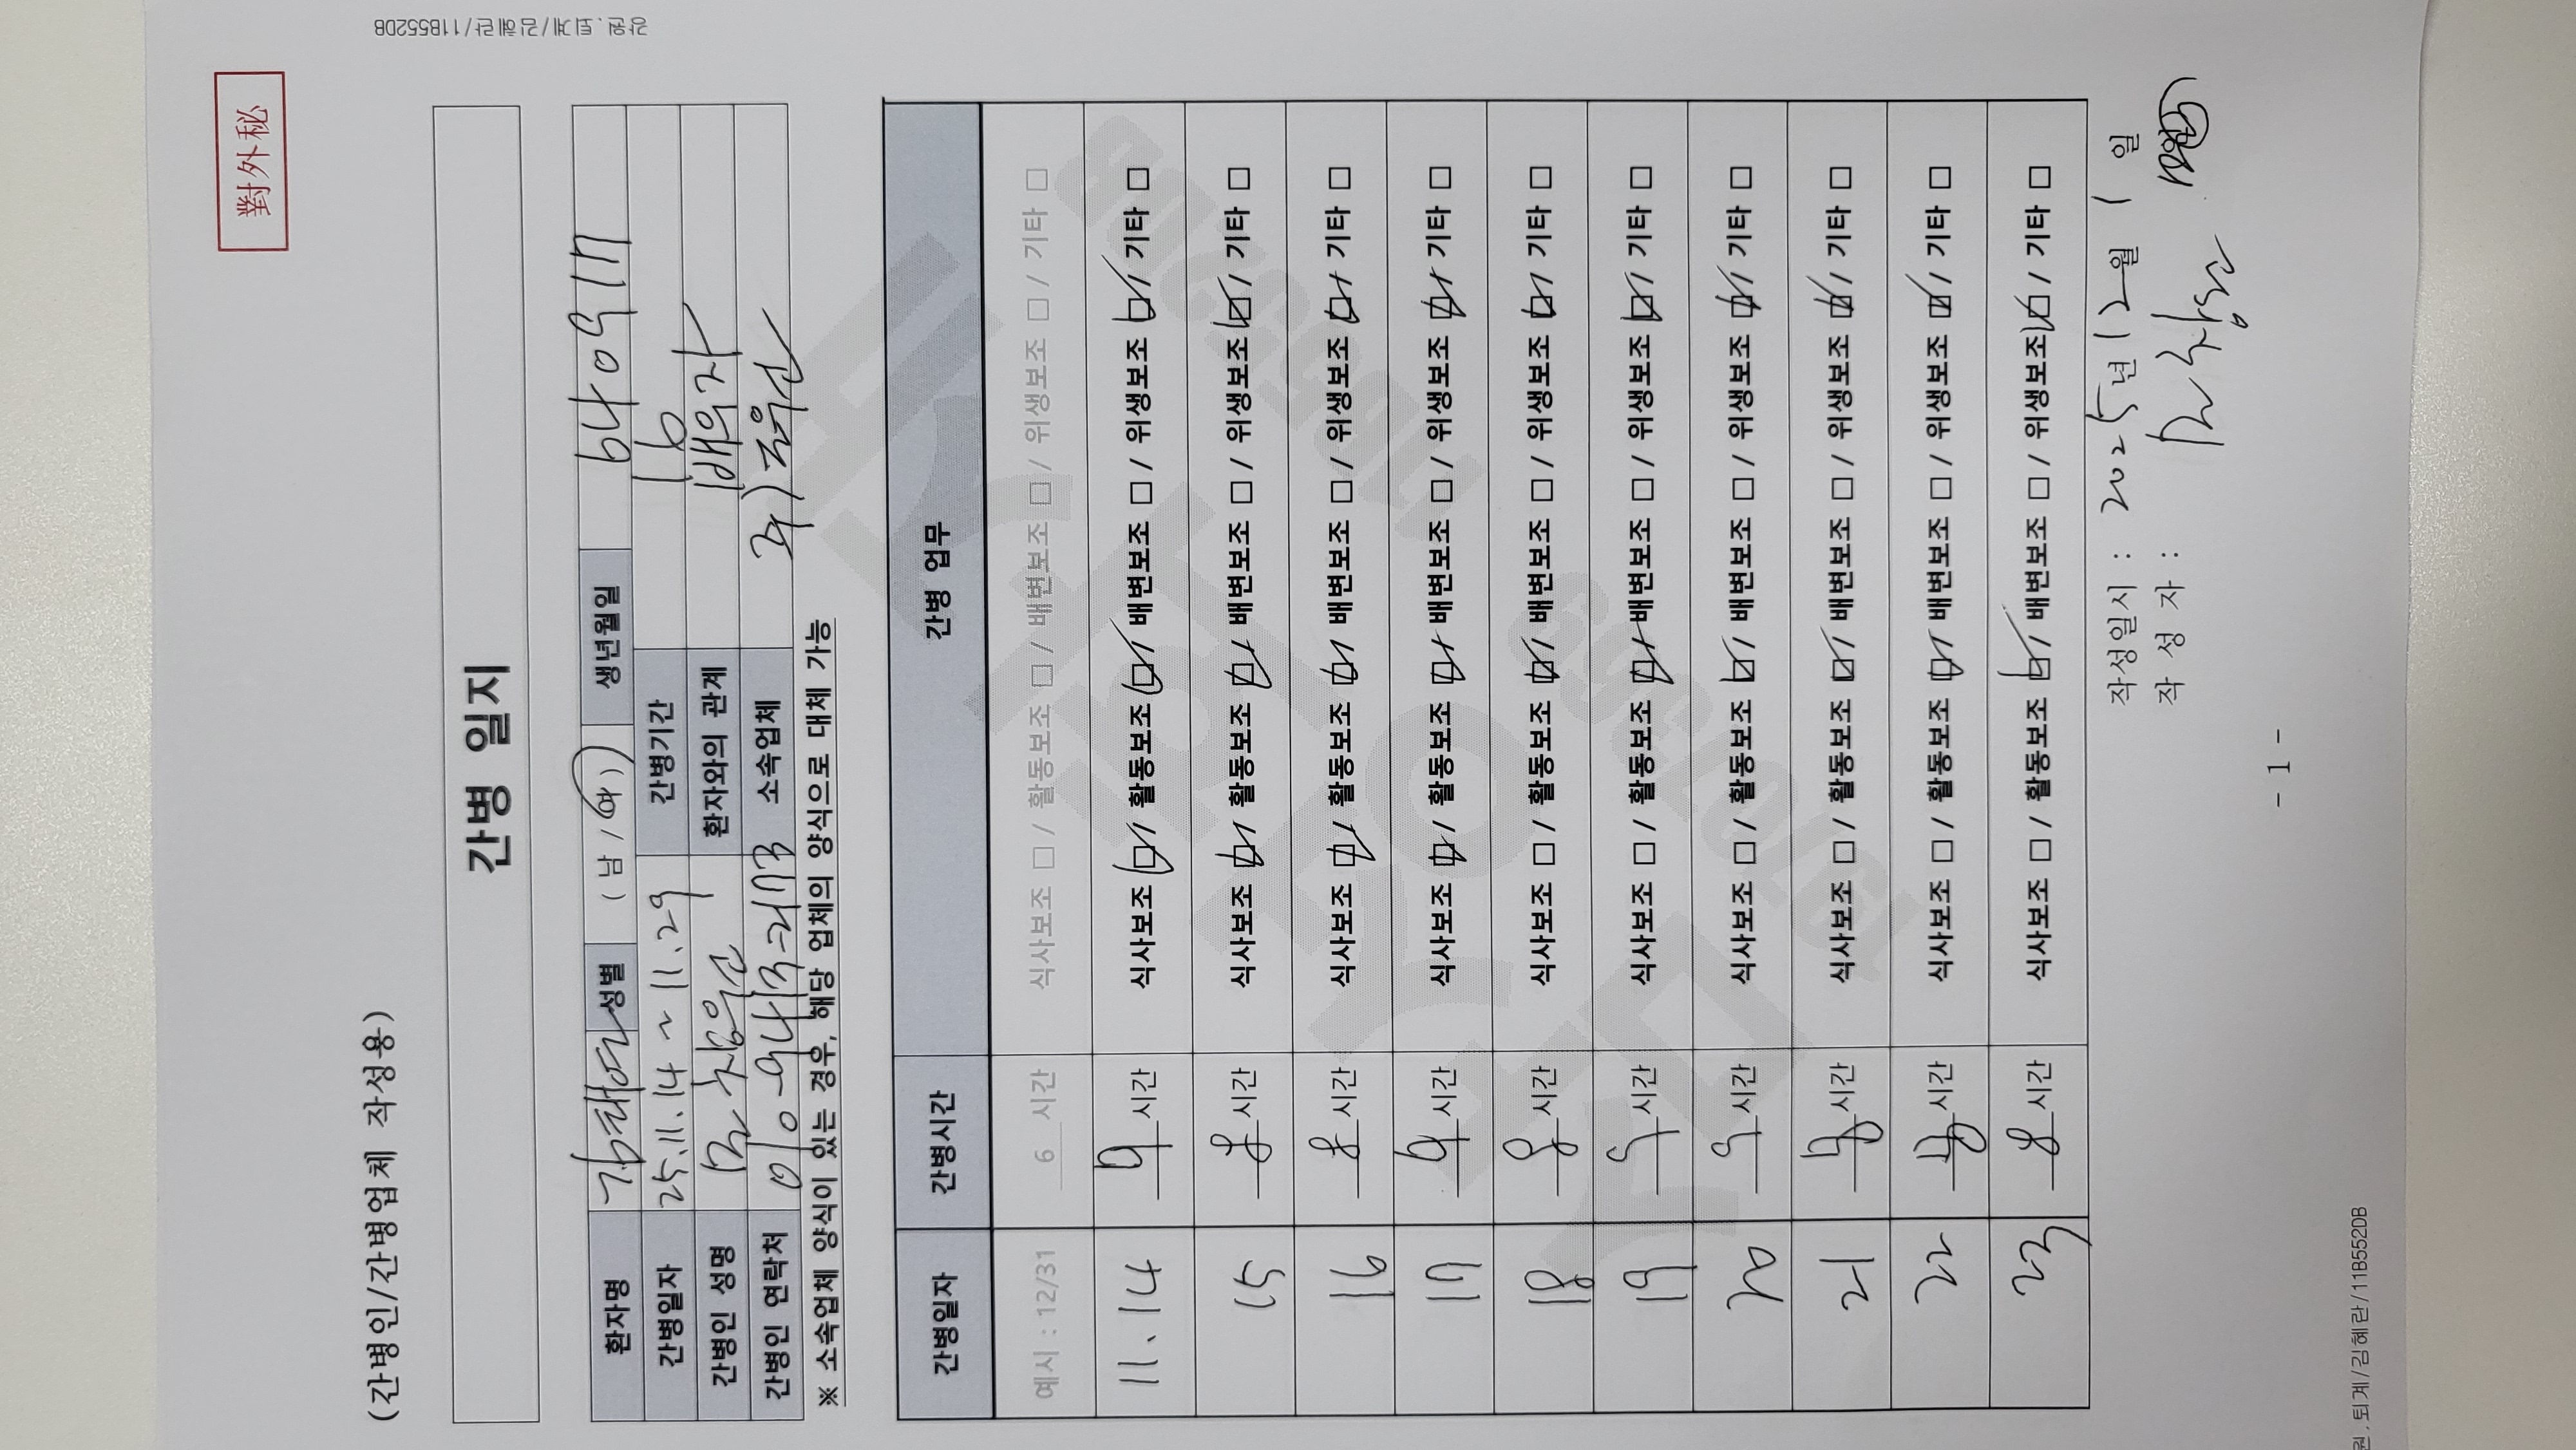 강원.퇴계/김혜란/11B552DB
對外秘
(간병인/간병업체 작성용)
간병 일지
환자명 성별 (남 / 여) 생년월일
간병일자 25.11.14 ~ 11.29 간병기간 16
간병인 성명 환자와의 관계 배우자
간병인 연락처 소속업체
※ 소속업체 양식이 있는 경우, 해당 업체의 양식으로 대체 가능
간병일자 간병시간 간병 업무
예시 : 12/31 6 시간 식사보조 □ / 활동보조 □ / 배변보조 □ / 위생보조 □ / 기타 □
11.14 9 시간 식사보조 ☑ / 활동보조 ☑ / 배변보조 □ / 위생보조 ☑ / 기타 □
15 8 시간 식사보조 ☑ / 활동보조 ☑ / 배변보조 □ / 위생보조 ☑ / 기타 □
16 8 시간 식사보조 ☑ / 활동보조 ☑ / 배변보조 □ / 위생보조 ☑ / 기타 □
17 9 시간 식사보조 ☑ / 활동보조 ☑ / 배변보조 □ / 위생보조 ☑ / 기타 □
18 8 시간 식사보조 □ / 활동보조 ☑ / 배변보조 □ / 위생보조 ☑ / 기타 □
19 시간 식사보조 □ / 활동보조 ☑ / 배변보조 □ / 위생보조 ☑ / 기타 □
20 시간 식사보조 □ / 활동보조 ☑ / 배변보조 □ / 위생보조 ☑ / 기타 □
21 시간 식사보조 □ / 활동보조 ☑ / 배변보조 □ / 위생보조 ☑ / 기타 □
22 시간 식사보조 □ / 활동보조 ☑ / 배변보조 □ / 위생보조 ☑ / 기타 □
23 8 시간 식사보조 □ / 활동보조 ☑ / 배변보조 □ / 위생보조 ☑ / 기타 □
작성일시 : 2025년 12월 1 일
작 성 자 :
- 1 -
원.퇴계/김혜란/11B552DB